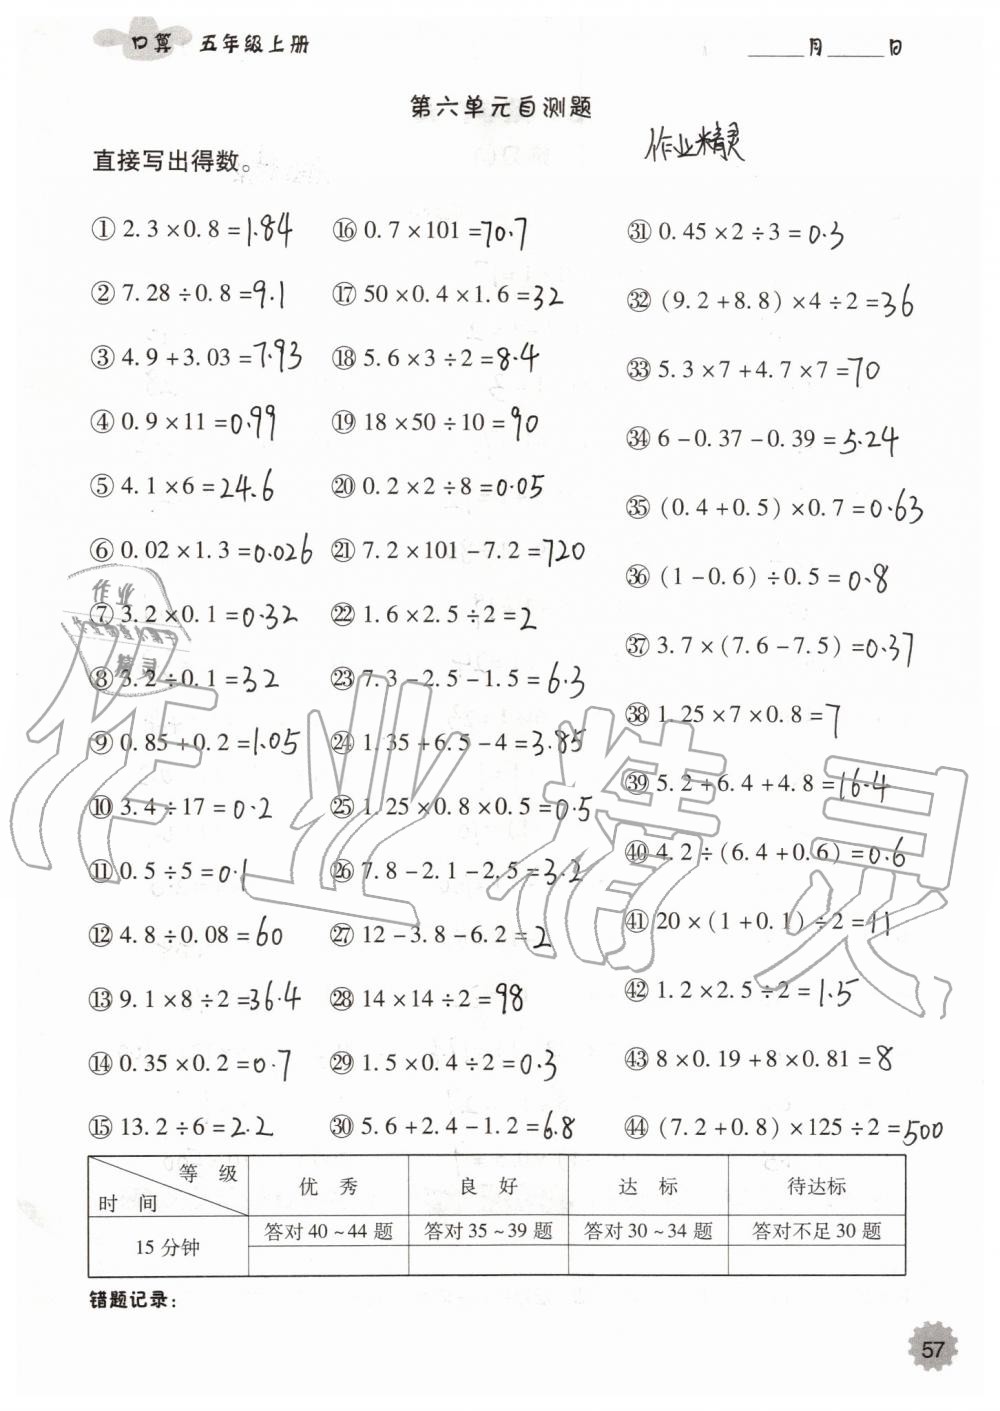 口算 五年级上册
____月____日
第六单元自测题
作业精灵
直接写出得数。
① 2.3×0.8=1.84
② 7.28÷0.8=9.1
③ 4.9+3.03=7.93
④ 0.9×11=0.99
⑤ 4.1×6=24.6
⑥ 0.02×1.3=0.026
⑦ 3.2×0.1=0.32
⑧ 3.2÷0.1=32
⑨ 0.85+0.2=1.05
⑩ 3.4÷17=0.2
⑪ 0.5÷5=0.1
⑫ 4.8÷0.08=60
⑬ 9.1×8÷2=36.4
⑭ 0.35×0.2=0.7
⑮ 13.2÷6=2.2
⑯ 0.7×101=70.7
⑰ 50×0.4×1.6=32
⑱ 5.6×3÷2=8.4
⑲ 18×50÷10=90
⑳ 0.2×2÷8=0.05
㉑ 7.2×101-7.2=720
㉒ 1.6×2.5÷2=2
㉓ 7.3-2.5-1.5=6.3
㉔ 1.35+6.5-4=3.85
㉕ 1.25×0.8×0.5=0.5
㉖ 7.8-2.1-2.5=3.2
㉗ 12-3.8-6.2=2
㉘ 14×14÷2=98
㉙ 1.5×0.4÷2=0.3
㉚ 5.6+2.4-1.2=6.8
㉛ 0.45×2÷3=0.3
㉜ (9.2+8.8)×4÷2=36
㉝ 5.3×7+4.7×7=70
㉞ 6-0.37-0.39=5.24
㉟ (0.4+0.5)×0.7=0.63
㊱ (1-0.6)÷0.5=0.8
㊲ 3.7×(7.6-7.5)=0.37
㊳ 1.25×7×0.8=7
㊴ 5.2+6.4+4.8=16.4
㊵ 4.2÷(6.4+0.6)=0.6
㊶ 20×(1+0.1)÷2=11
㊷ 1.2×2.5÷2=1.5
㊸ 8×0.19+8×0.81=8
㊹ (7.2+0.8)×125÷2=500
作业
精灵
作业精灵
等级 优秀 良好 达标 待达标
时间
15分钟 答对40~44题 答对35~39题 答对30~34题 答对不足30题
错题记录：
57